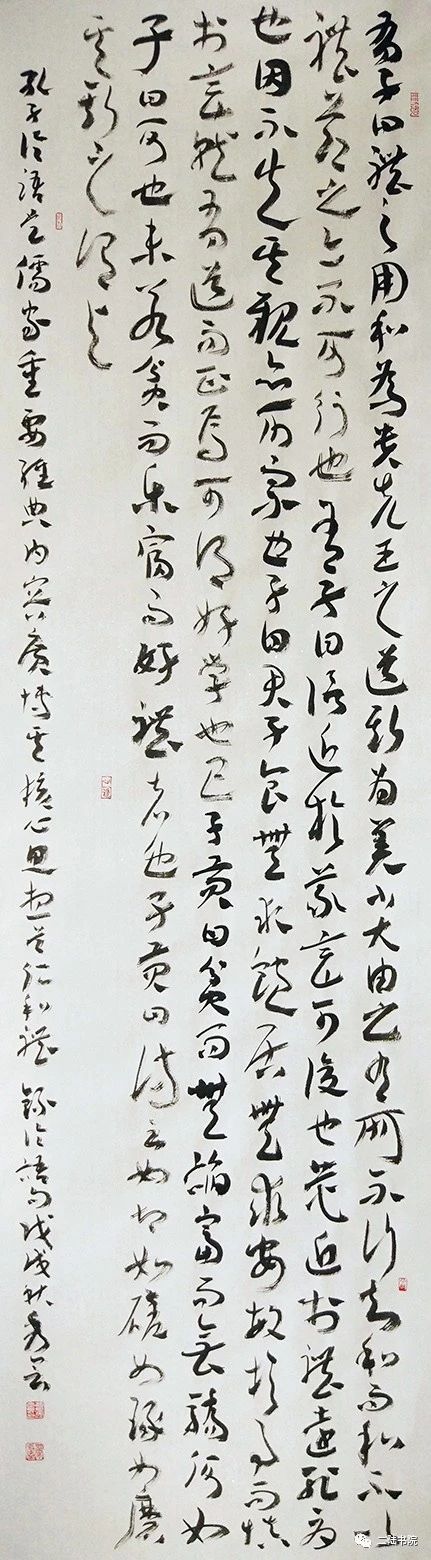 有子曰禮之用和為貴先王之道斯為美小大由之有所不行知和而和不以
禮節之亦不可行也有子曰信近於義言可復也恭近於禮遠恥辱
也因不失其親亦可宗也子曰君子食無求飽居無求安敏於事而慎
於言就有道而正焉可謂好學也已子貢曰貧而無諂富而無驕何如
子曰可也未若貧而樂富而好禮者也子貢曰詩云如切如磋如琢如磨
其斯之謂與
孔子論語是儒家重要經典内容廣博其核心思想是仁和禮錄論語句戊戌秋
二陆书院